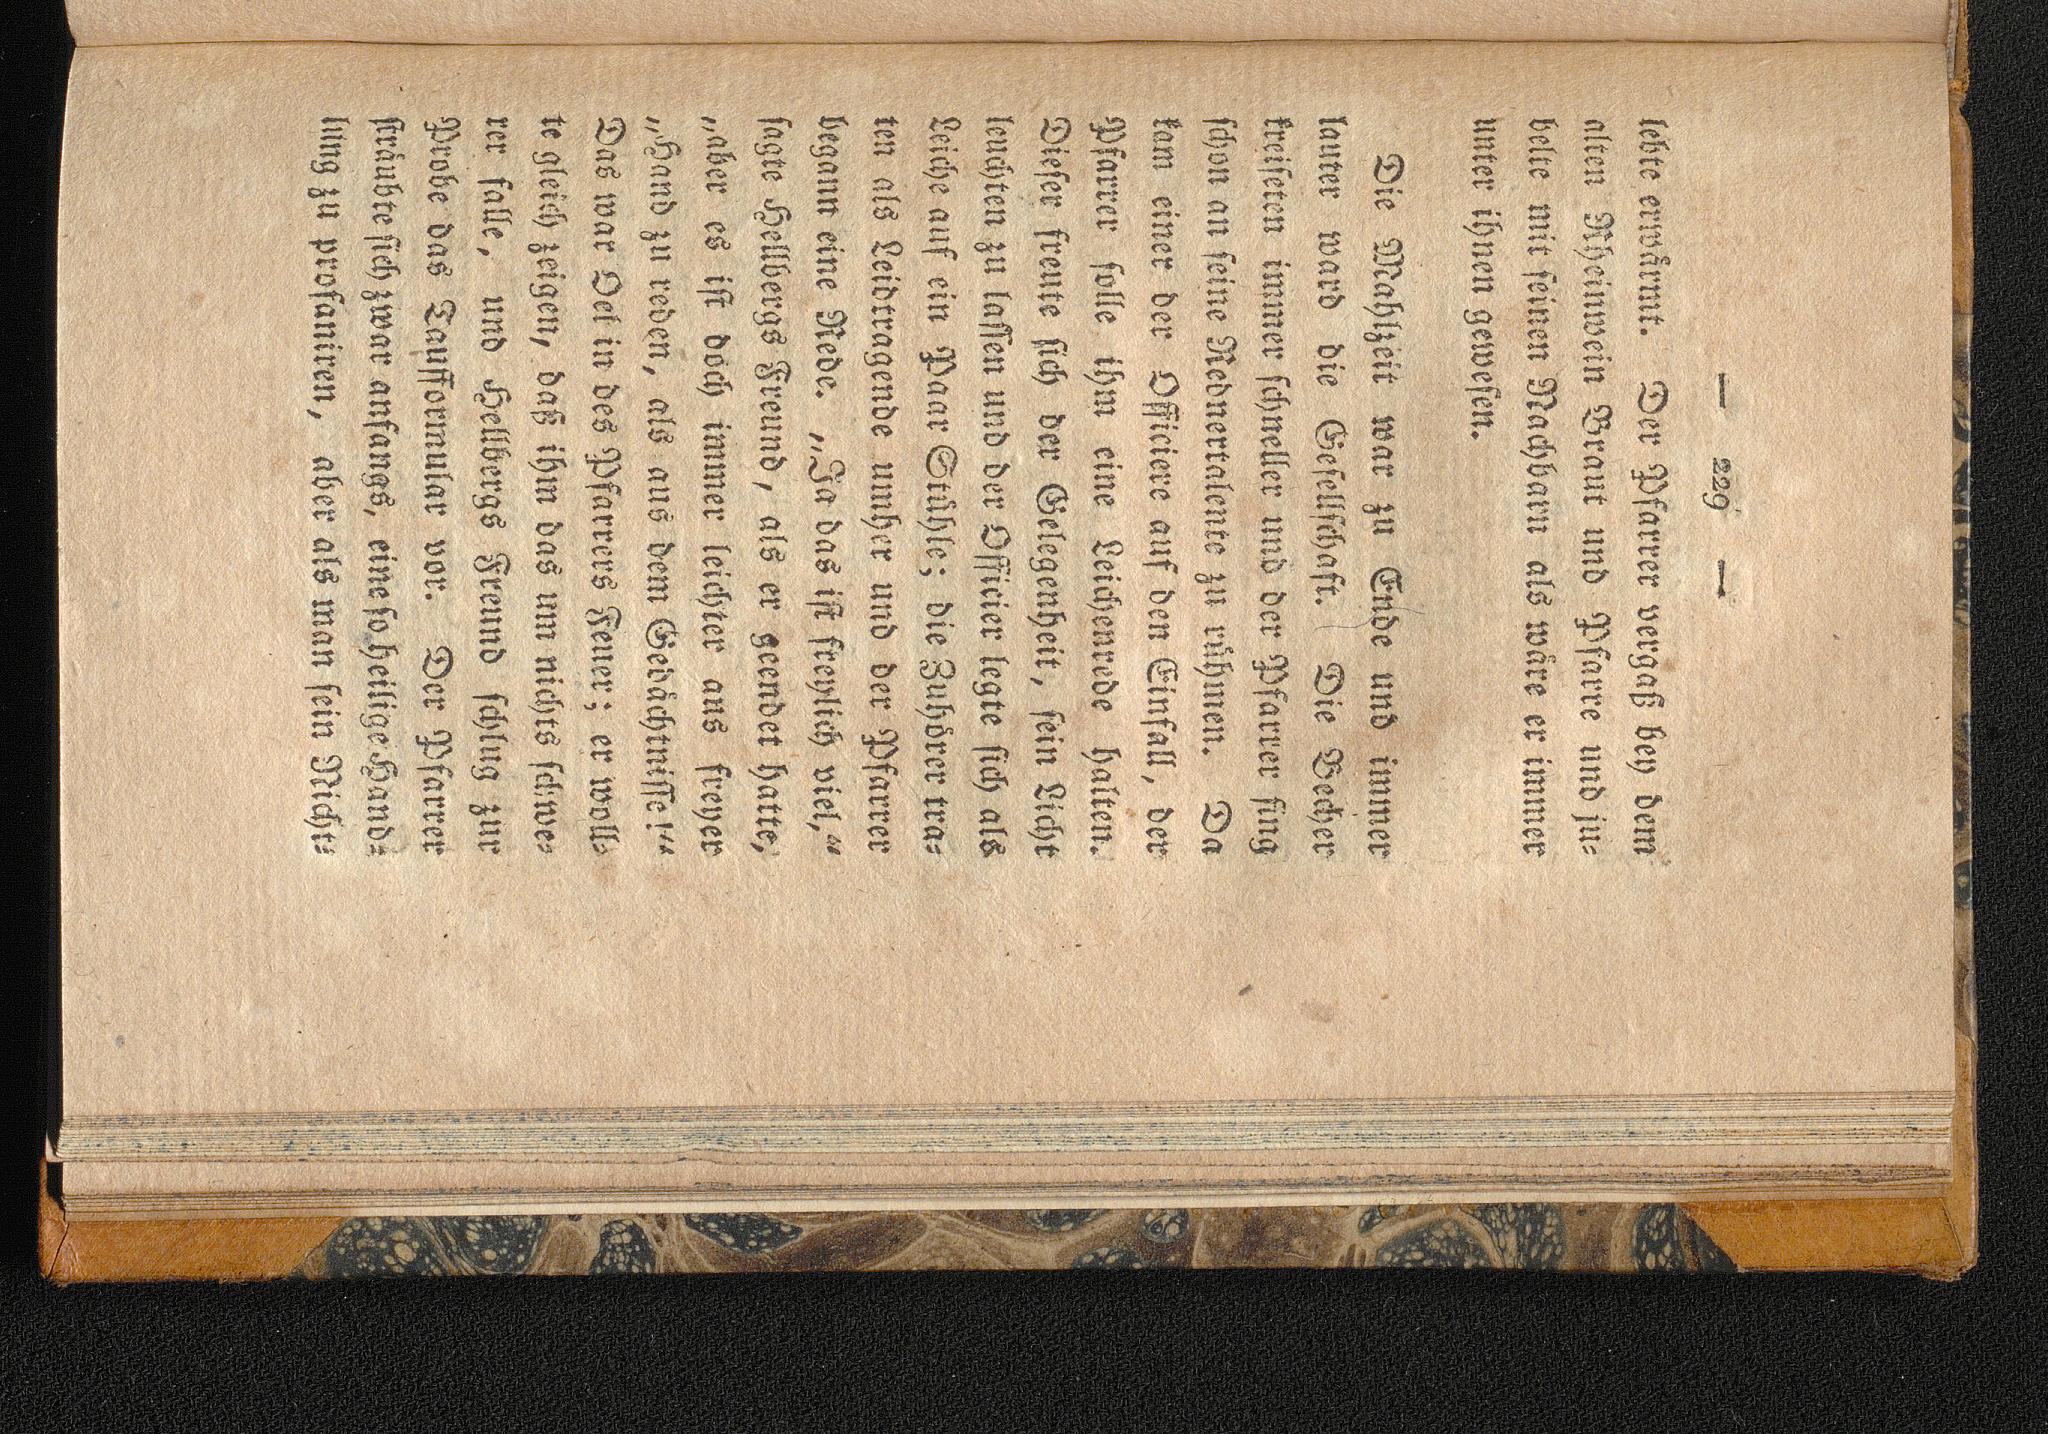 — 229 —
lebte erwärmt. Der Pfarrer vergaß bey dem
alten Rheinwein Braut und Pfarre und ju-
belte mit seinen Nachbarn als wäre er immer
unter ihnen gewesen.
Die Mahlzeit war zu Ende und immer
lauter ward die Gesellschaft. Die Becher
kreiseten immer schneller und der Pfarrer fing
schon an seine Rednertalente zu rühmen. Da
kam einer der Officiere auf den Einfall, der
Pfarrer solle ihm eine Leichenrede halten.
Dieser freute sich der Gelegenheit, sein Licht
leuchten zu lassen und der Officier legte sich als
Leiche auf ein Paar Stühle; die Zuhörer tra-
ten als Leidtragende umher und der Pfarrer
begann eine Rede. „Ja das ist freylich viel,“
sagte Hellbergs Freund, als er geendet hatte,
„aber es ist doch immer leichter aus freyer
„Hand zu reden, als aus dem Gedächtnisse!“
Das war Oel in des Pfarrers Feuer; er woll-
te gleich zeigen, daß ihm das um nichts schwe-
rer falle, und Hellbergs Freund schlug zur
Probe das Taufformular vor. Der Pfarrer
sträubte sich zwar anfangs, eine so heilige Hand-
lung zu profaniren, aber als man sein Nicht-